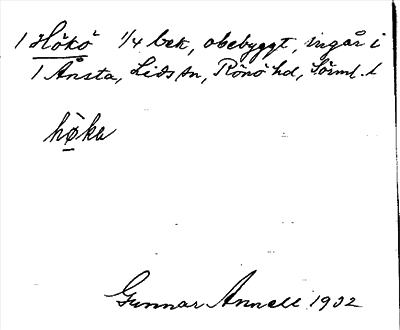 1 Hökö 1/4 bek, obebyggt, ingår i
1 Ånsta, Lids sn, Rönö hd, Sörml. l
höka
Gunnar Annell 1932